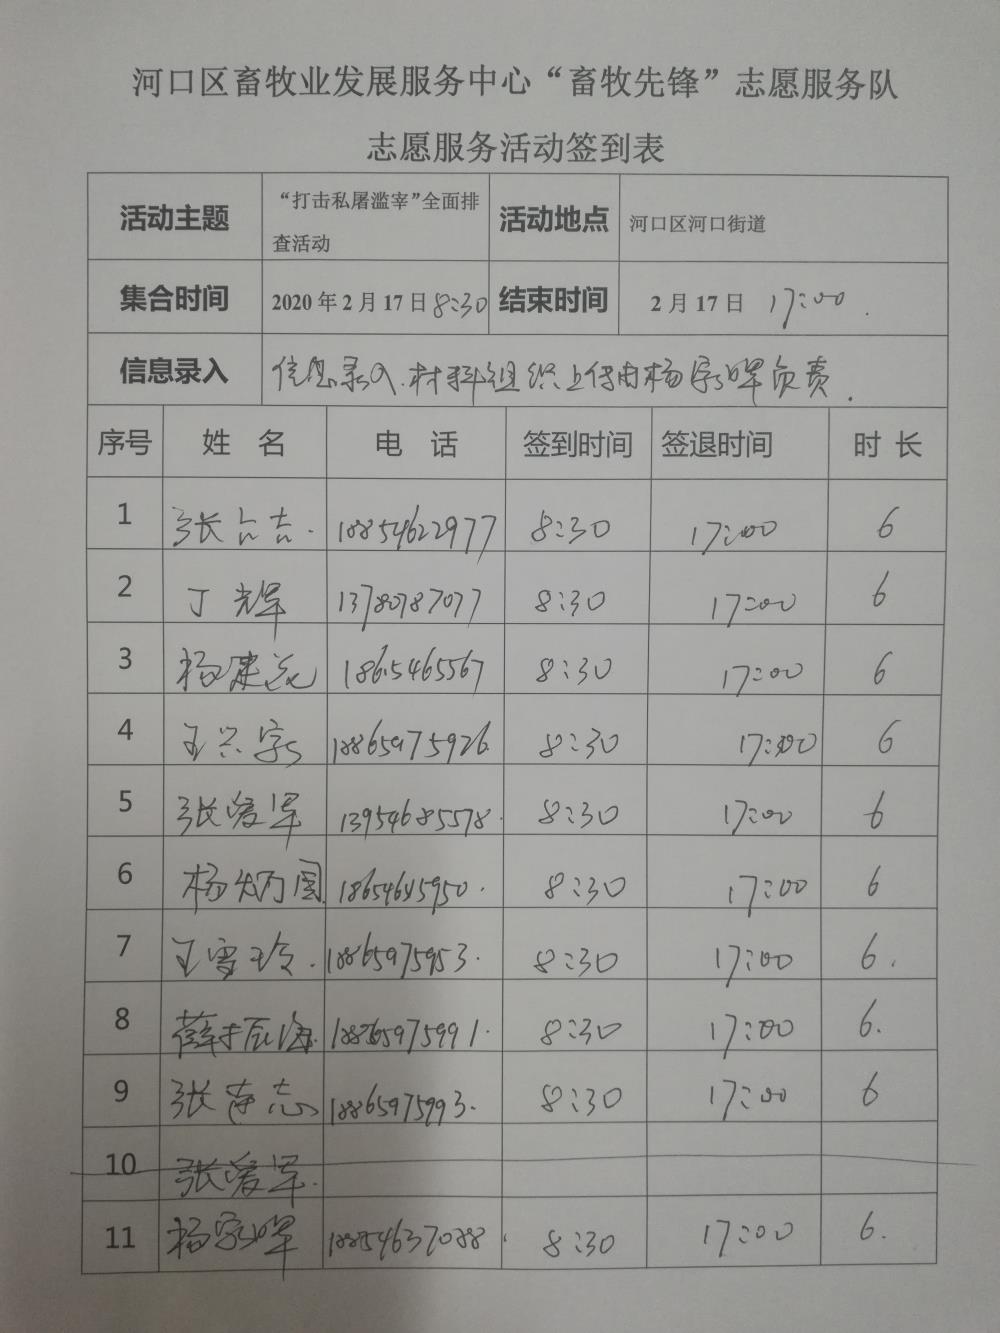 河口区畜牧业发展服务中心“畜牧先锋”志愿服务队
志愿服务活动签到表
活动主题 “打击私屠滥宰”全面排 活动地点 河口区河口街道
查活动
集合时间 2020年2月17日 8:30 结束时间 2月17日 17:00.
信息录入 信息录入.材料组织上传由杨家晖负责.
序号 姓 名 电 话 签到时间 签退时间 时 长
1 张吉吉. 18854622977 8:30 17:00 6
2 丁光军 13780787077 8:30 17:00 6
3 杨建 18615465567 8:30 17:00 6
4 王兴家 18865975926. 8:30 17:00 6
5 张爱军 13954685578. 8:30 17:00 6
6 杨炳国 18654645950. 8:30 17:00 6
7 王雪玲. 18865975953. 8:30 17:00 6.
8 薛振海. 18865975991. 8:30 17:00 6.
9 张南志 18865975993. 8:30 17:00 6
10 张爱军.
11 杨家晖 18854637088 8:30 17:00 6.